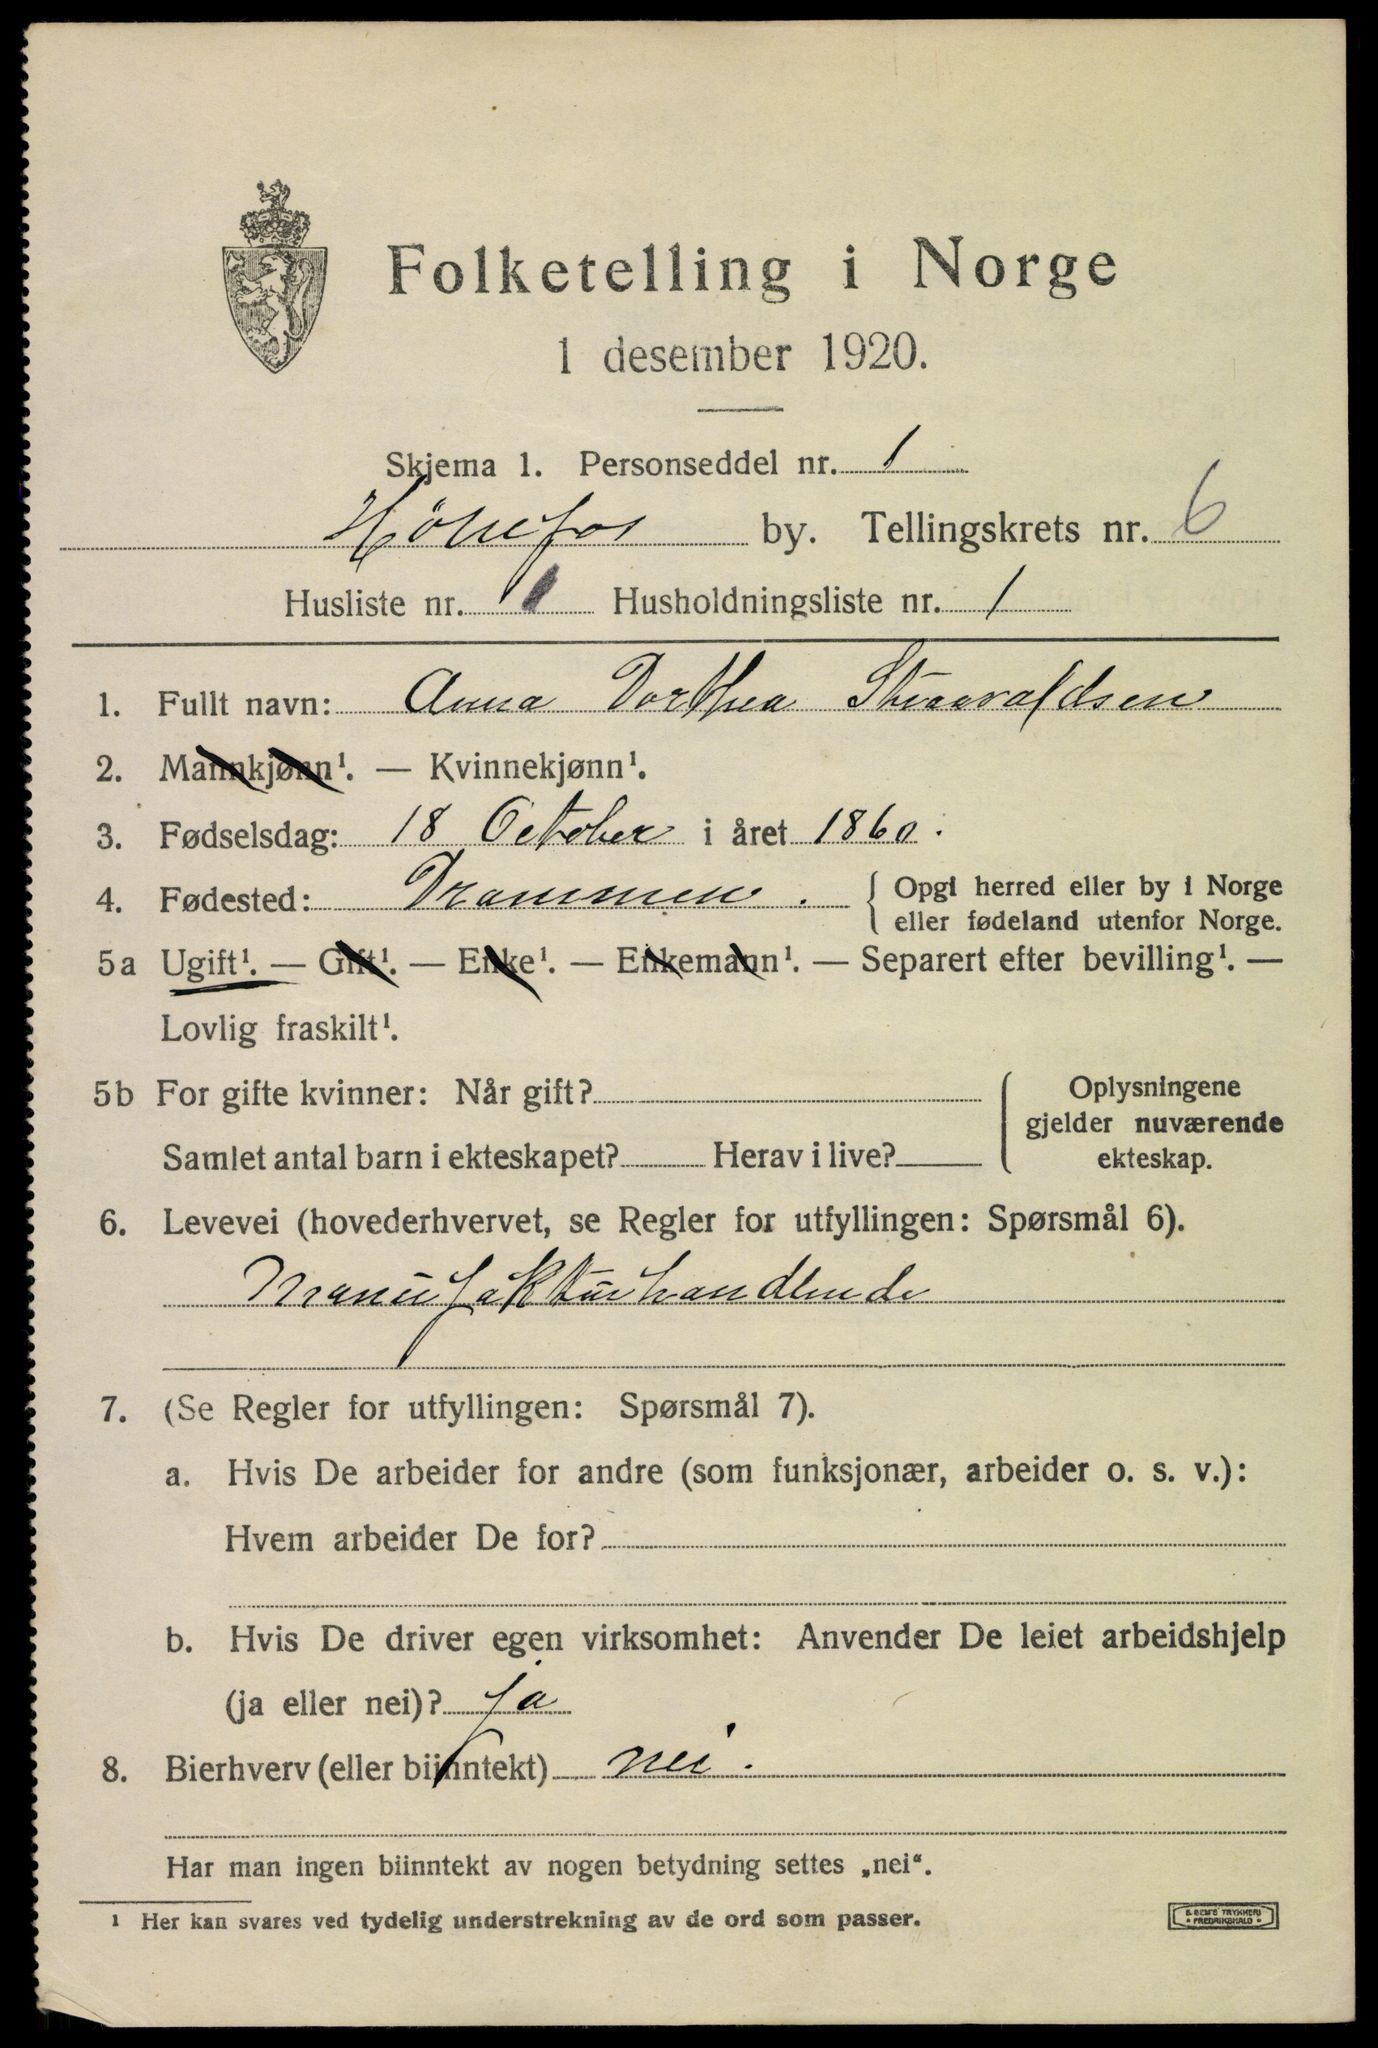 Folketelling i Norge
1 desember 1920.
Skjema 1. Personseddel nr. 1
Hönefos by. Tellingskrets nr. 6
Husliste nr. 1 Husholdningsliste nr. 1
1. Fullt navn: Anna Dorthea
2. Mannkjønn¹. — Kvinnekjønn¹.
3. Fødselsdag: 18 October i året 1860.
4. Fødested: Drammen. { Opgi herred eller by i Norge
eller fødeland utenfor Norge.
5a Ugift¹. — Gift¹. — Enke¹. — Enkemann¹. — Separert efter bevilling¹. —
Lovlig fraskilt¹.
5b For gifte kvinner: Når gift?
Samlet antal barn i ekteskapet? Herav i live?
{ Oplysningene
gjelder nuværende
ekteskap.
6. Levevei (hovederhvervet, se Regler for utfyllingen: Spørsmål 6).
Manufakturhandlende
7. (Se Regler for utfyllingen: Spørsmål 7).
a. Hvis De arbeider for andre (som funksjonær, arbeider o. s. v.):
Hvem arbeider De for?
b. Hvis De driver egen virksomhet: Anvender De leiet arbeidshjelp
(ja eller nei)? ja
8. Bierhverv (eller biinntekt) nei.
Har man ingen biinntekt av nogen betydning settes „nei“.
¹ Her kan svares ved tydelig understrekning av de ord som passer.
TRYKKERI
FREDRIKSHALD